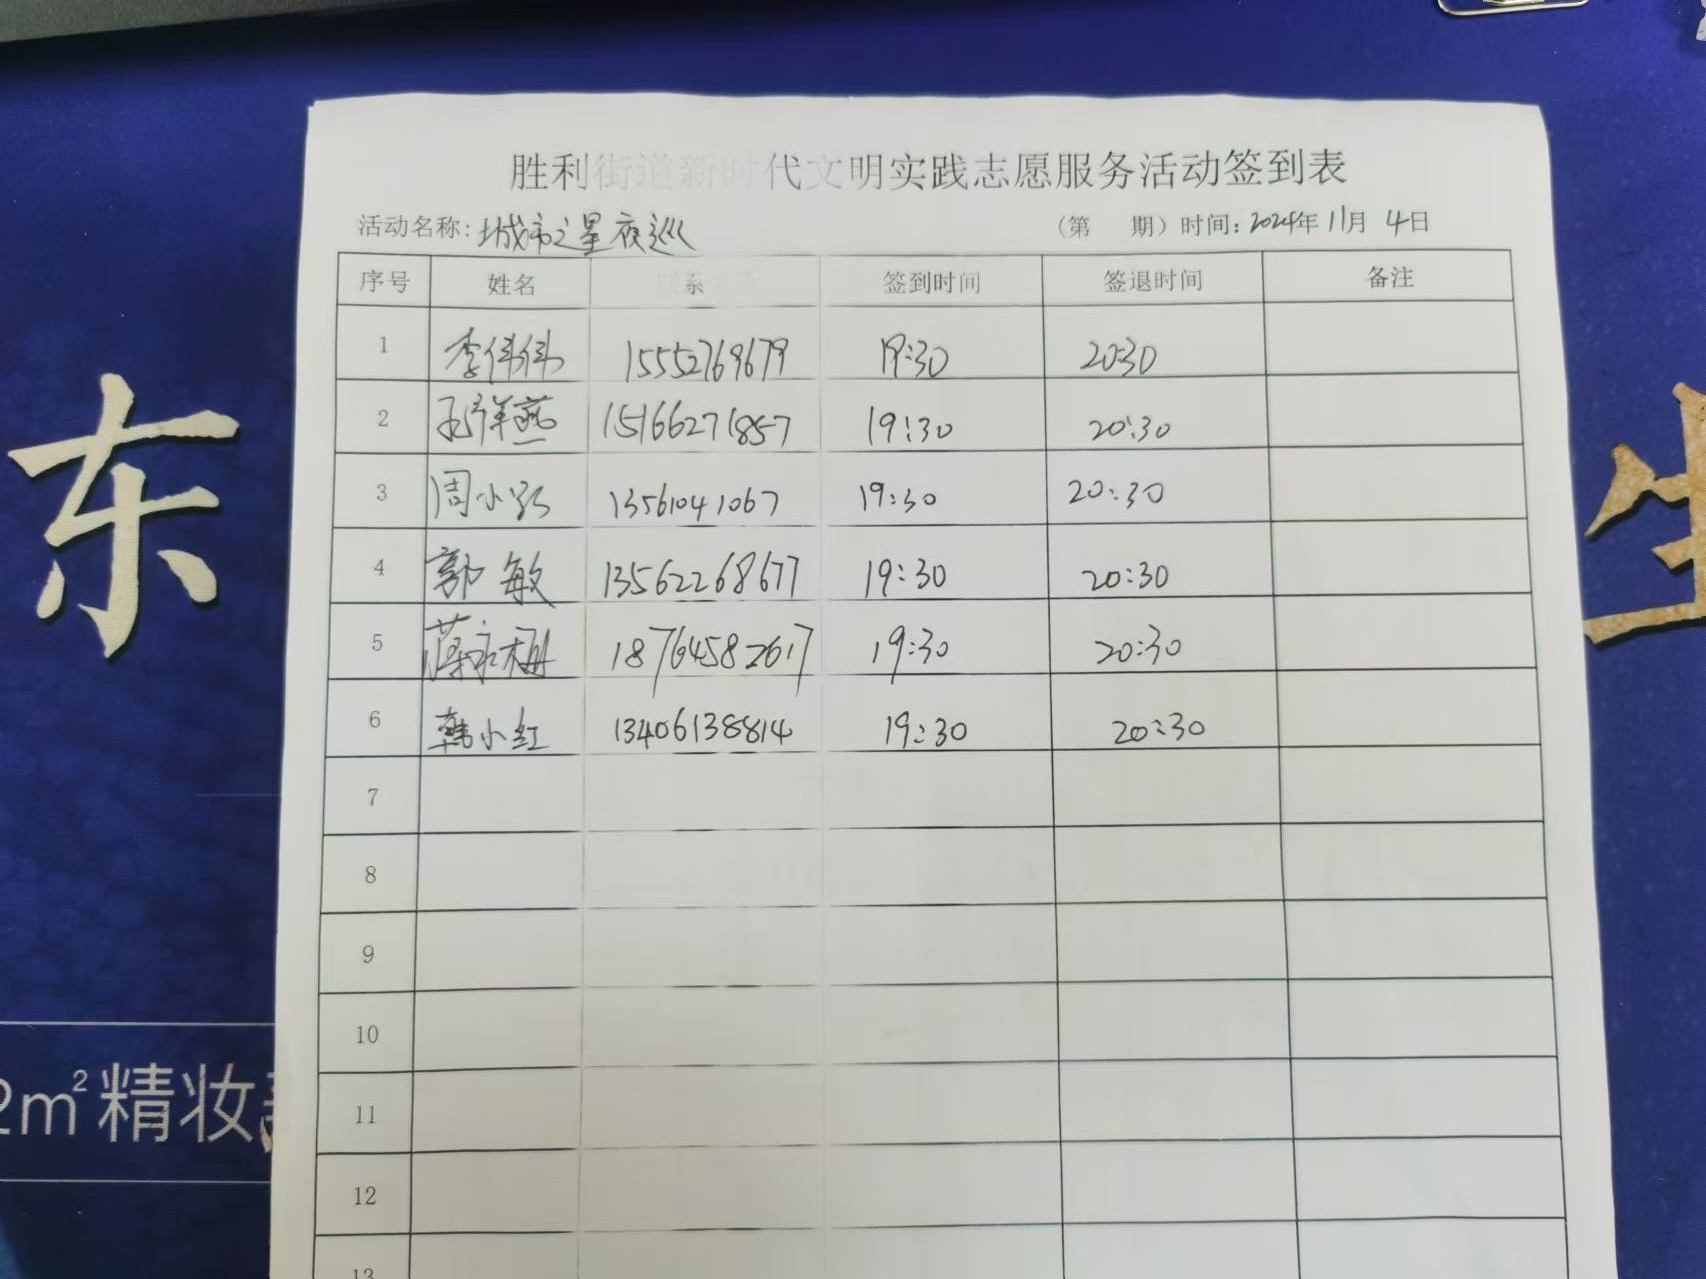 胜利街道新时代文明实践志愿服务活动签到表
活动名称: 城市之星夜巡 (第 期) 时间: 2024年 11月 4日
序号 姓名 联系电话 签到时间 签退时间 备注
1 李伟伟 15552769679 19:30 20:30
2 孙祥燕 15166271857 19:30 20:30
3 周小 13561041067 19:30 20:30
4 郭敏 13562268677 19:30 20:30
5 永梅 18764582617 19:30 20:30
6 韩小红 13406138814 19:30 20:30
7
8
9
10
11
12
13
东
生
2m²精妆